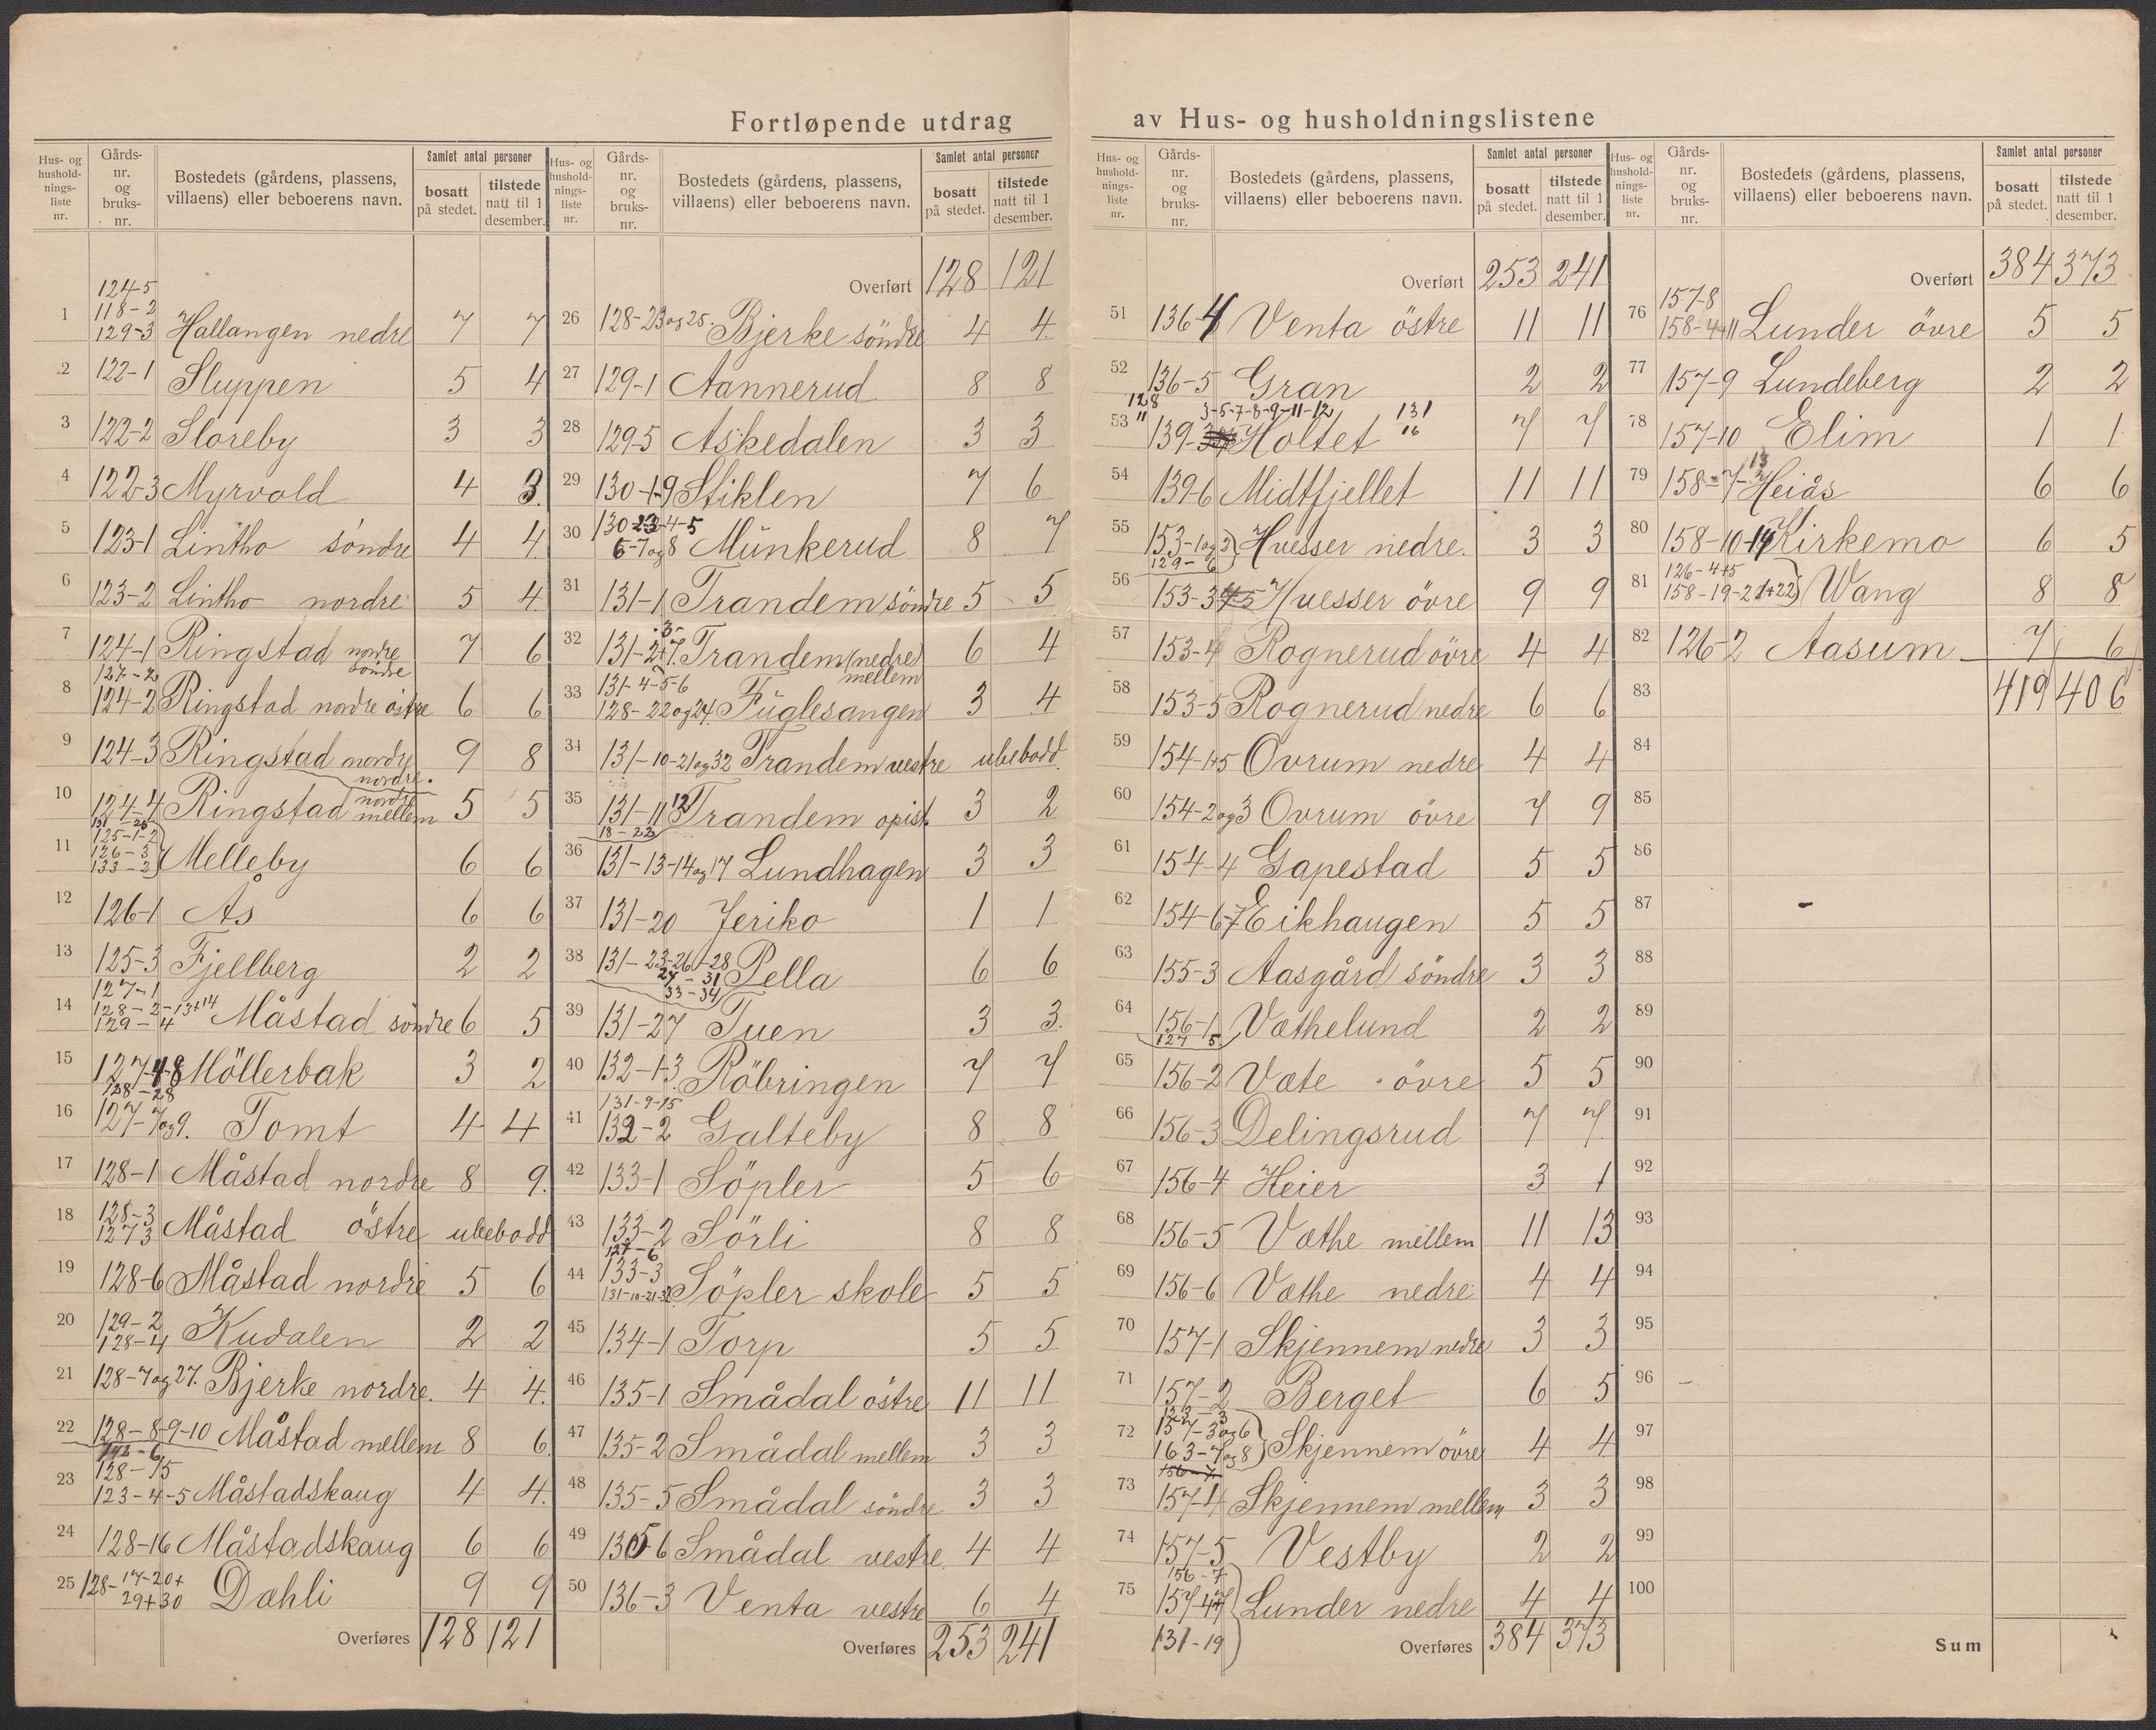 Fortløpende utdrag av Hus- og husholdningslistene
Hus- og husholdnings- liste nr. | Gårds- nr. og bruks- nr. | Bostedets (gårdens, plassens, villaens) eller beboerens navn. | Samlet antal personer | bosatt på stedet. | tilstede natt til 1 desember.
1 124-5 118-2 129-3 Hallangen nedre 7 7
2 122-1 Sluppen 5 4
3 122-2 Sloreby 3 3
4 122-3 Myrvold 4 3.
5 123-1 Lintho söndre 4 4
6 123-2 Lintho nordre 5 4
7 124-1 Ringstad nordre söndre 7 6
8 127-2 124-2 Ringstad nordre östre 6 6
9 124-3 Ringstad nordre nordre. 9 8
10 124-4 Ringstad nordre mellem 5 5
11 131-26 125-1-2 126-3 133-2 Melleby 6 6
12 126-1 Ås 6 6
13 125-3 Fjellberg 2 2
14 127-1 128-2-13+14 129-4 Måstad söndre 6 5
15 127-4-8 Möllerbak 3 2
16 128-28 127-7og9. Tomt 4 4
17 128-1 Måstad nordre 8 9.
18 128-3 127 3 Måstad östre ubebodd
19 128-6 Måstad nordre 5 6
20 129-2 128-4 Kudalen 2 2
21 128-7og27. Bjerke nordre. 4 4.
22 128-8-9-10 Måstad mellem 8 6.
23 128-15 123-4-5 Måstadskaug 4 4.
24 128-16 Måstadskaug 6 6
25 128-17-20+ 29+30 Dæhli 9 9
Overføres 128 121
Hus- og husholdnings- liste nr. | Gårds- nr. og bruks- nr. | Bostedets (gårdens, plassens, villaens) eller beboerens navn. | Samlet antal personer | bosatt på stedet. | tilstede natt til 1 desember.
Overført 128 121
26 128-23og25. Bjerke söndre 4 4.
27 129-1 Aannerud 8 8
28 129-5 Askedalen 3 3
29 130-1-9 Stiklen 7 6
30 130-23-4-5 6-7og8 Munkerud 8 7
31 131-1 Trandem söndre 5 5
32 131-2+7. 3- Trandem (nedre) mellem 6 4
33 131-4-5-6 128-22og24. Fuglesangen 3 4
34 131-10-21og32 Trandem vestre ubebodd.
35 131-11 12 Trandem opist. 3 2
36 18-22 131-13-14og17 Lundhagen 3 3
37 131-20 Jeriko 1 1
38 131-23-26-28 24-31 33-34 Pella 6 6
39 131-27 Tuen 3 3.
40 132-1-3. Röbringen 7 7
41 131-9-15 132-2 Galteby 8 8
42 133-1 Söpler 5 6
43 133-2 Sörli 8 8
44 127-6 133-3 131-10-21-32 Söpler skole 5 5
45 134-1 Torp 5 5
46 135-1 Smådal östre 11 11
47 135-2 Smådal mellem 3 3
48 135-5 Smådal söndre 3 3
49 135 6 Smådal vestre. 4 4
50 136-3 Venta vestre 6 4
Overføres 253 241
Hus- og husholdnings- liste nr. | Gårds- nr. og bruks- nr. | Bostedets (gårdens, plassens, villaens) eller beboerens navn. | Samlet antal personer | bosatt på stedet. | tilstede natt til 1 desember.
Overført 253 241
51 136-4 Venta östre 11 11
52 136-5 Gran 2 2
53 128 11 139-3-5-7-8-9-11-12 Holtet 131 16 7 7
54 139-6 Midtfjellet 11 11
55 153-1og2 129-6 Huesser nedre. 3 3
56 153-3 Huesser övre 9 9
57 153-4 Rognerud övre 4 4
58 153-5 Rognerud nedre 6 6
59 154-1+5 Ovrum nedre 4 4
60 154-2og3 Ovrum övre 7 9
61 154-4 Gapestad 5 5
62 154-6-7 Eikhaugen 5 5
63 155-3 Aasgård söndre 3 3
64 156-1 127 5. Væthelund 2 2
65 156-2 Væte övre 5 5
66 156-3 Delingsrud 7 7.
67 156-4 Heier 3 1
68 156-5 Væthe mellem 11 13
69 156-6 Væthe nedre 4 4
70 157-1 Skjennem nedre 3 3
71 157-2 Berget 6 5
72 157-3og6 163-7og8 Skjennem övre 4 4
73 157-4 Skjennem mellem 3 3
74 157-5 Vestby 2 2
75 156-7 157-4 131-19 Lunder nedre 4 4
Overføres 384 373
Hus- og husholdnings- liste nr. | Gårds- nr. og bruks- nr. | Bostedets (gårdens, plassens, villaens) eller beboerens navn. | Samlet antal personer | bosatt på stedet. | tilstede natt til 1 desember.
Overført 384 373
76 157-8 158-4+11 Lunder övre 5 5
77 157-9 Lundeberg 2 2
78 157-10 Elim 1 1
79 158-7-13 Heiås 6 6
80 158-10-14 Kirkemo 6 5
81 126-4+5 158-19-21+22 Wang 8 8
82 126-2 Aasum 7 6
83 419 406
84
85
86
87
88
89
90
91
92
93
94
95
96
97
98
99
100
Sum